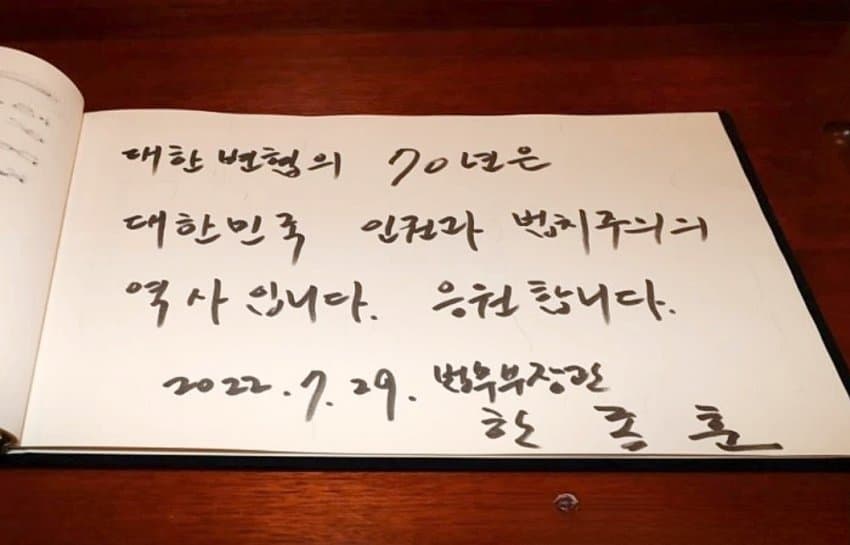 대한변협의 70년은
대한민국 인권과 법치주의의
역사입니다. 응원합니다.
2022.7.29. 법무부장관
한동훈